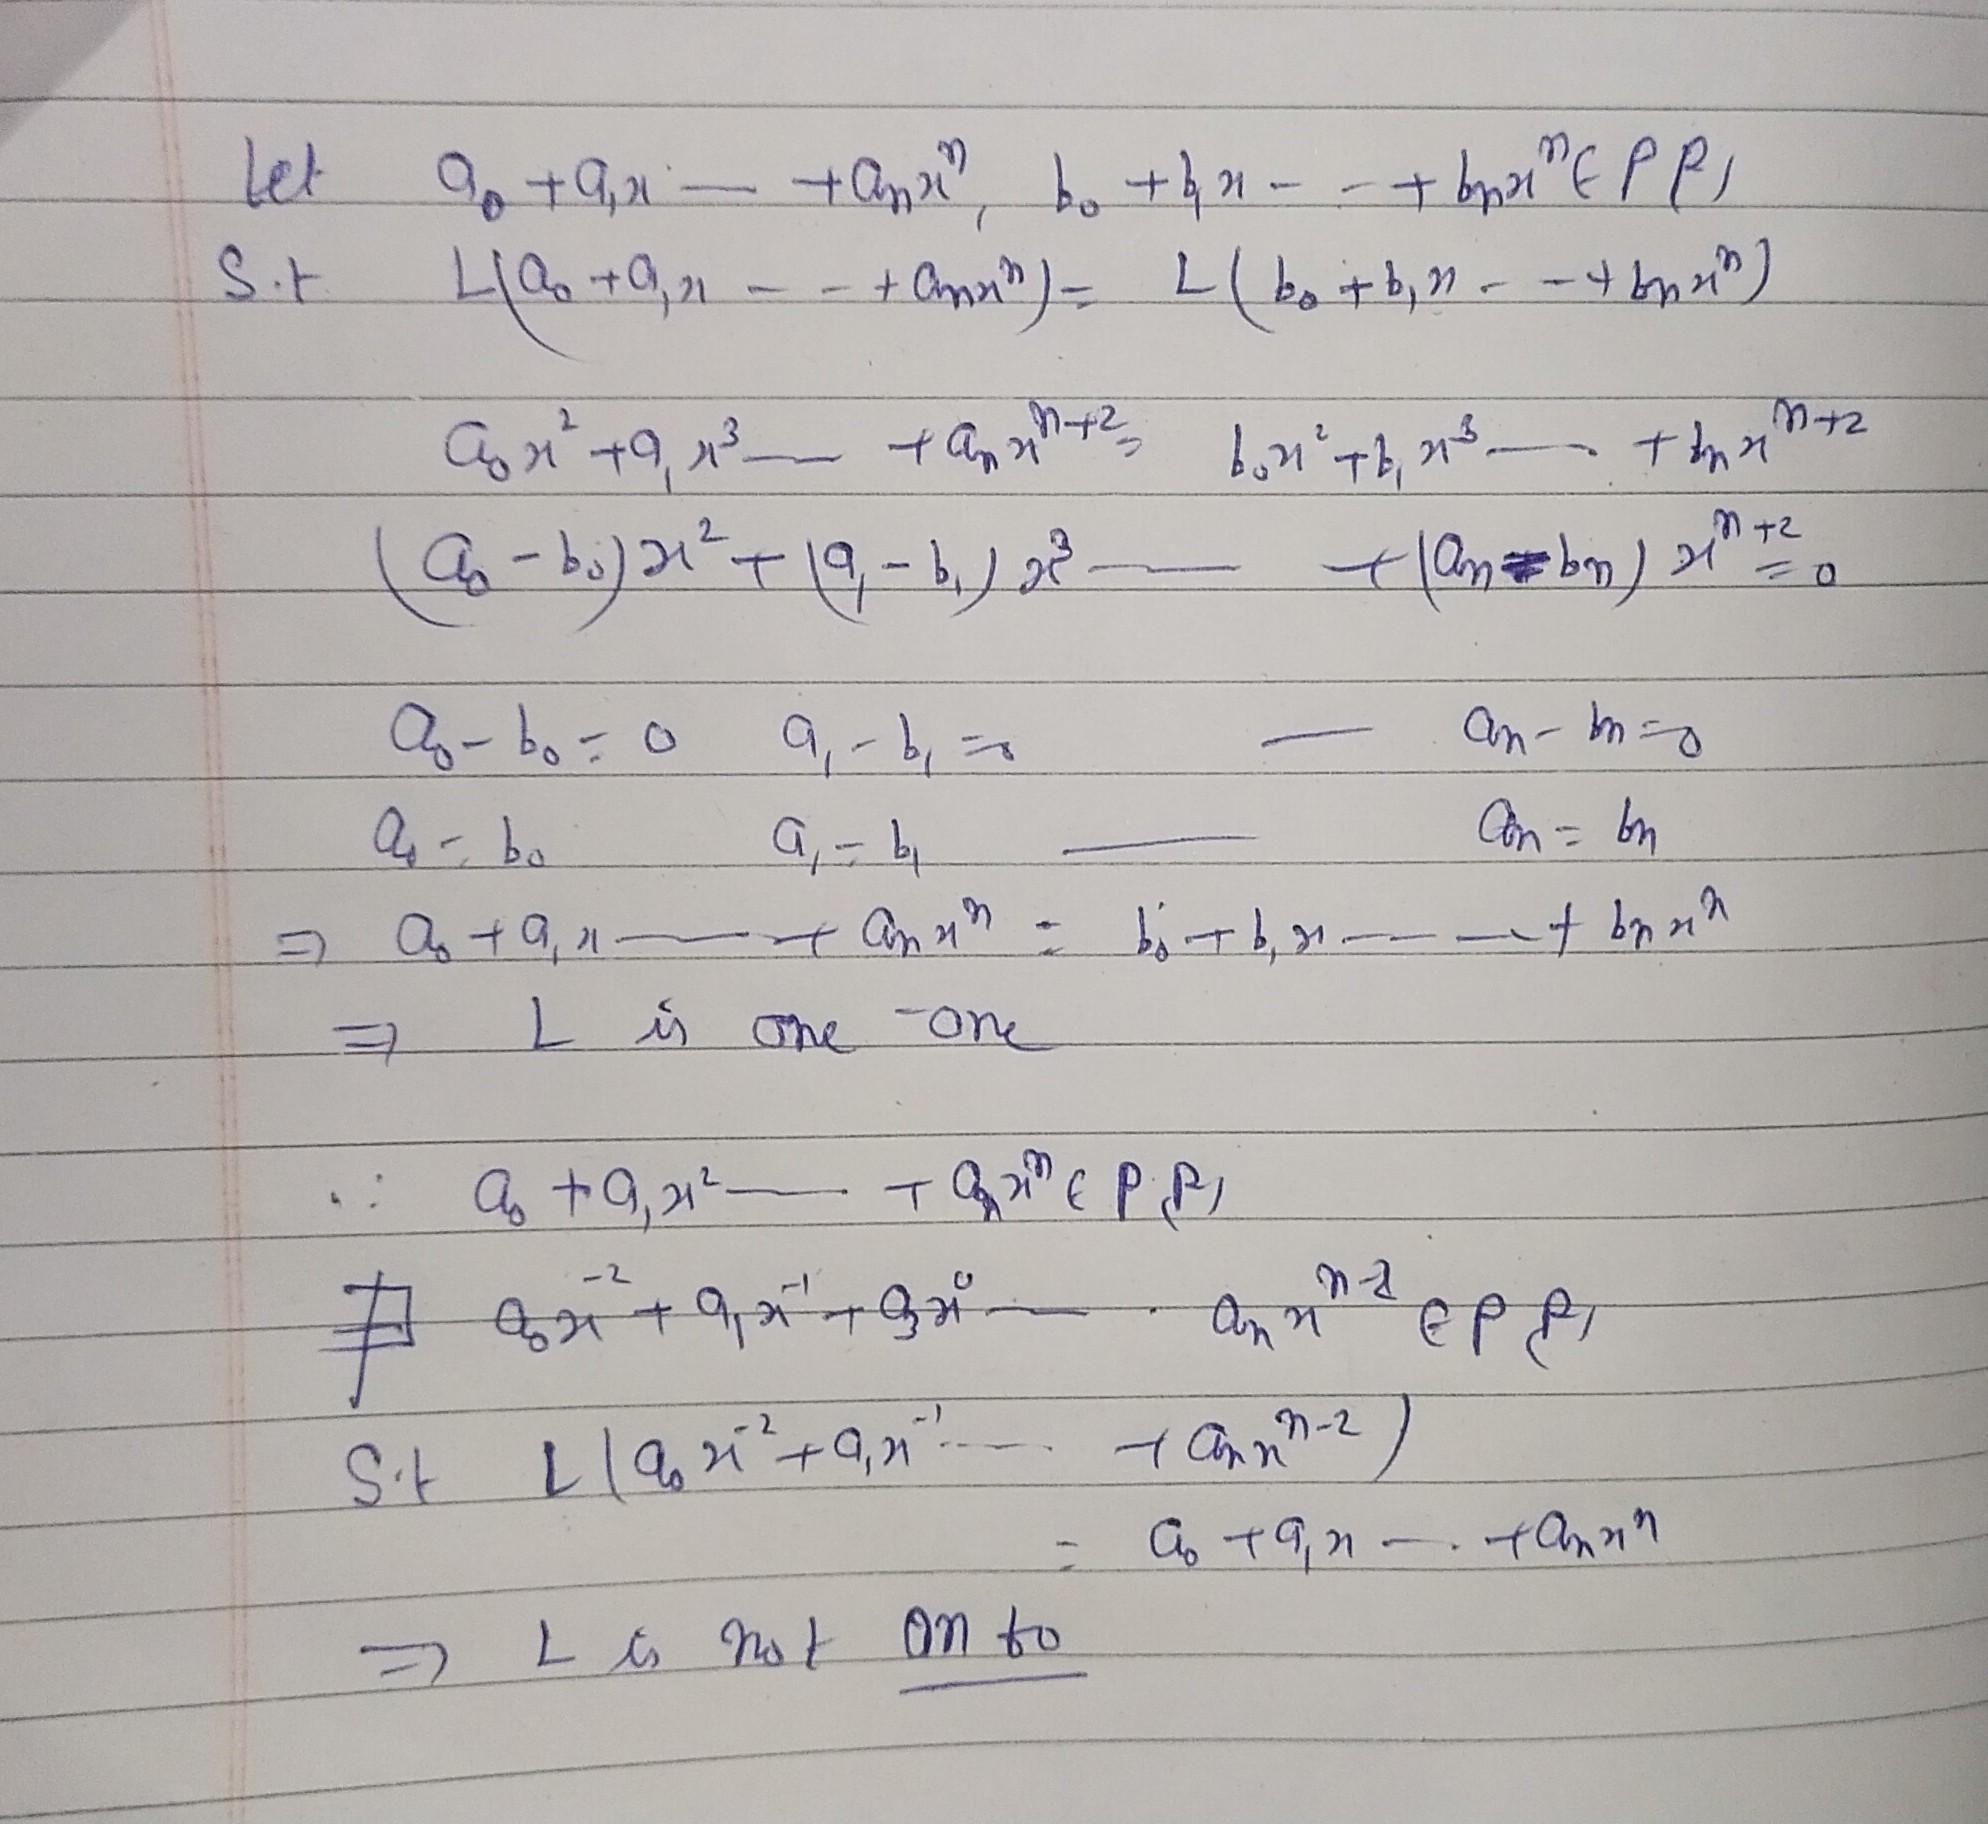 Let a₀ + a₁x — + aₙxⁿ, b₀ + b₁x - - + bₙxⁿ ∈ P(F)
S.t L(a₀ + a₁x - - + aₙxⁿ) = L(b₀ + b₁x - - + bₙxⁿ)
a₀x² + a₁x³ — + aₙxⁿ⁺² = b₀x² + b₁x³ — + bₙxⁿ⁺²
(a₀ - b₀)x² + (a₁ - b₁)x³ — + (aₙ - bₙ)xⁿ⁺² = 0
a₀ - b₀ = 0 a₁ - b₁ = 0 — aₙ - bₙ = 0
a₀ = b₀ a₁ = b₁ — aₙ = bₙ
⇒ a₀ + a₁x — + aₙxⁿ = b₀ + b₁x — + bₙxⁿ
⇒ L is one-one
∴ a₀ + a₁x² — + aₙxⁿ ∈ P(F)
∄ a₀x⁻² + a₁x⁻¹ + a₃x⁰ — aₙxⁿ⁻² ∈ P(F)
S.t L(a₀x⁻² + a₁x⁻¹ — + aₙxⁿ⁻²)
= a₀ + a₁x — + aₙxⁿ
⇒ L is not on to